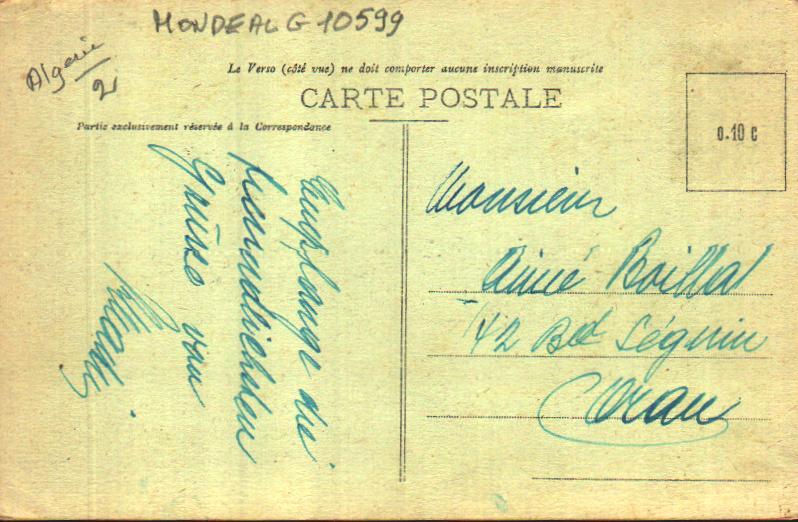 MONDEAL G 10599
Algerie
2
Le Verso (côté vue) ne doit comporter aucune inscription manuscrite
CARTE POSTALE
Partie exclusivement réservée à la Correspondance
0.10 c
Empfange die
freundlichsten
Grüsse von
Monsieur
Aimé Boillat
42 Bd Séguin
Oran